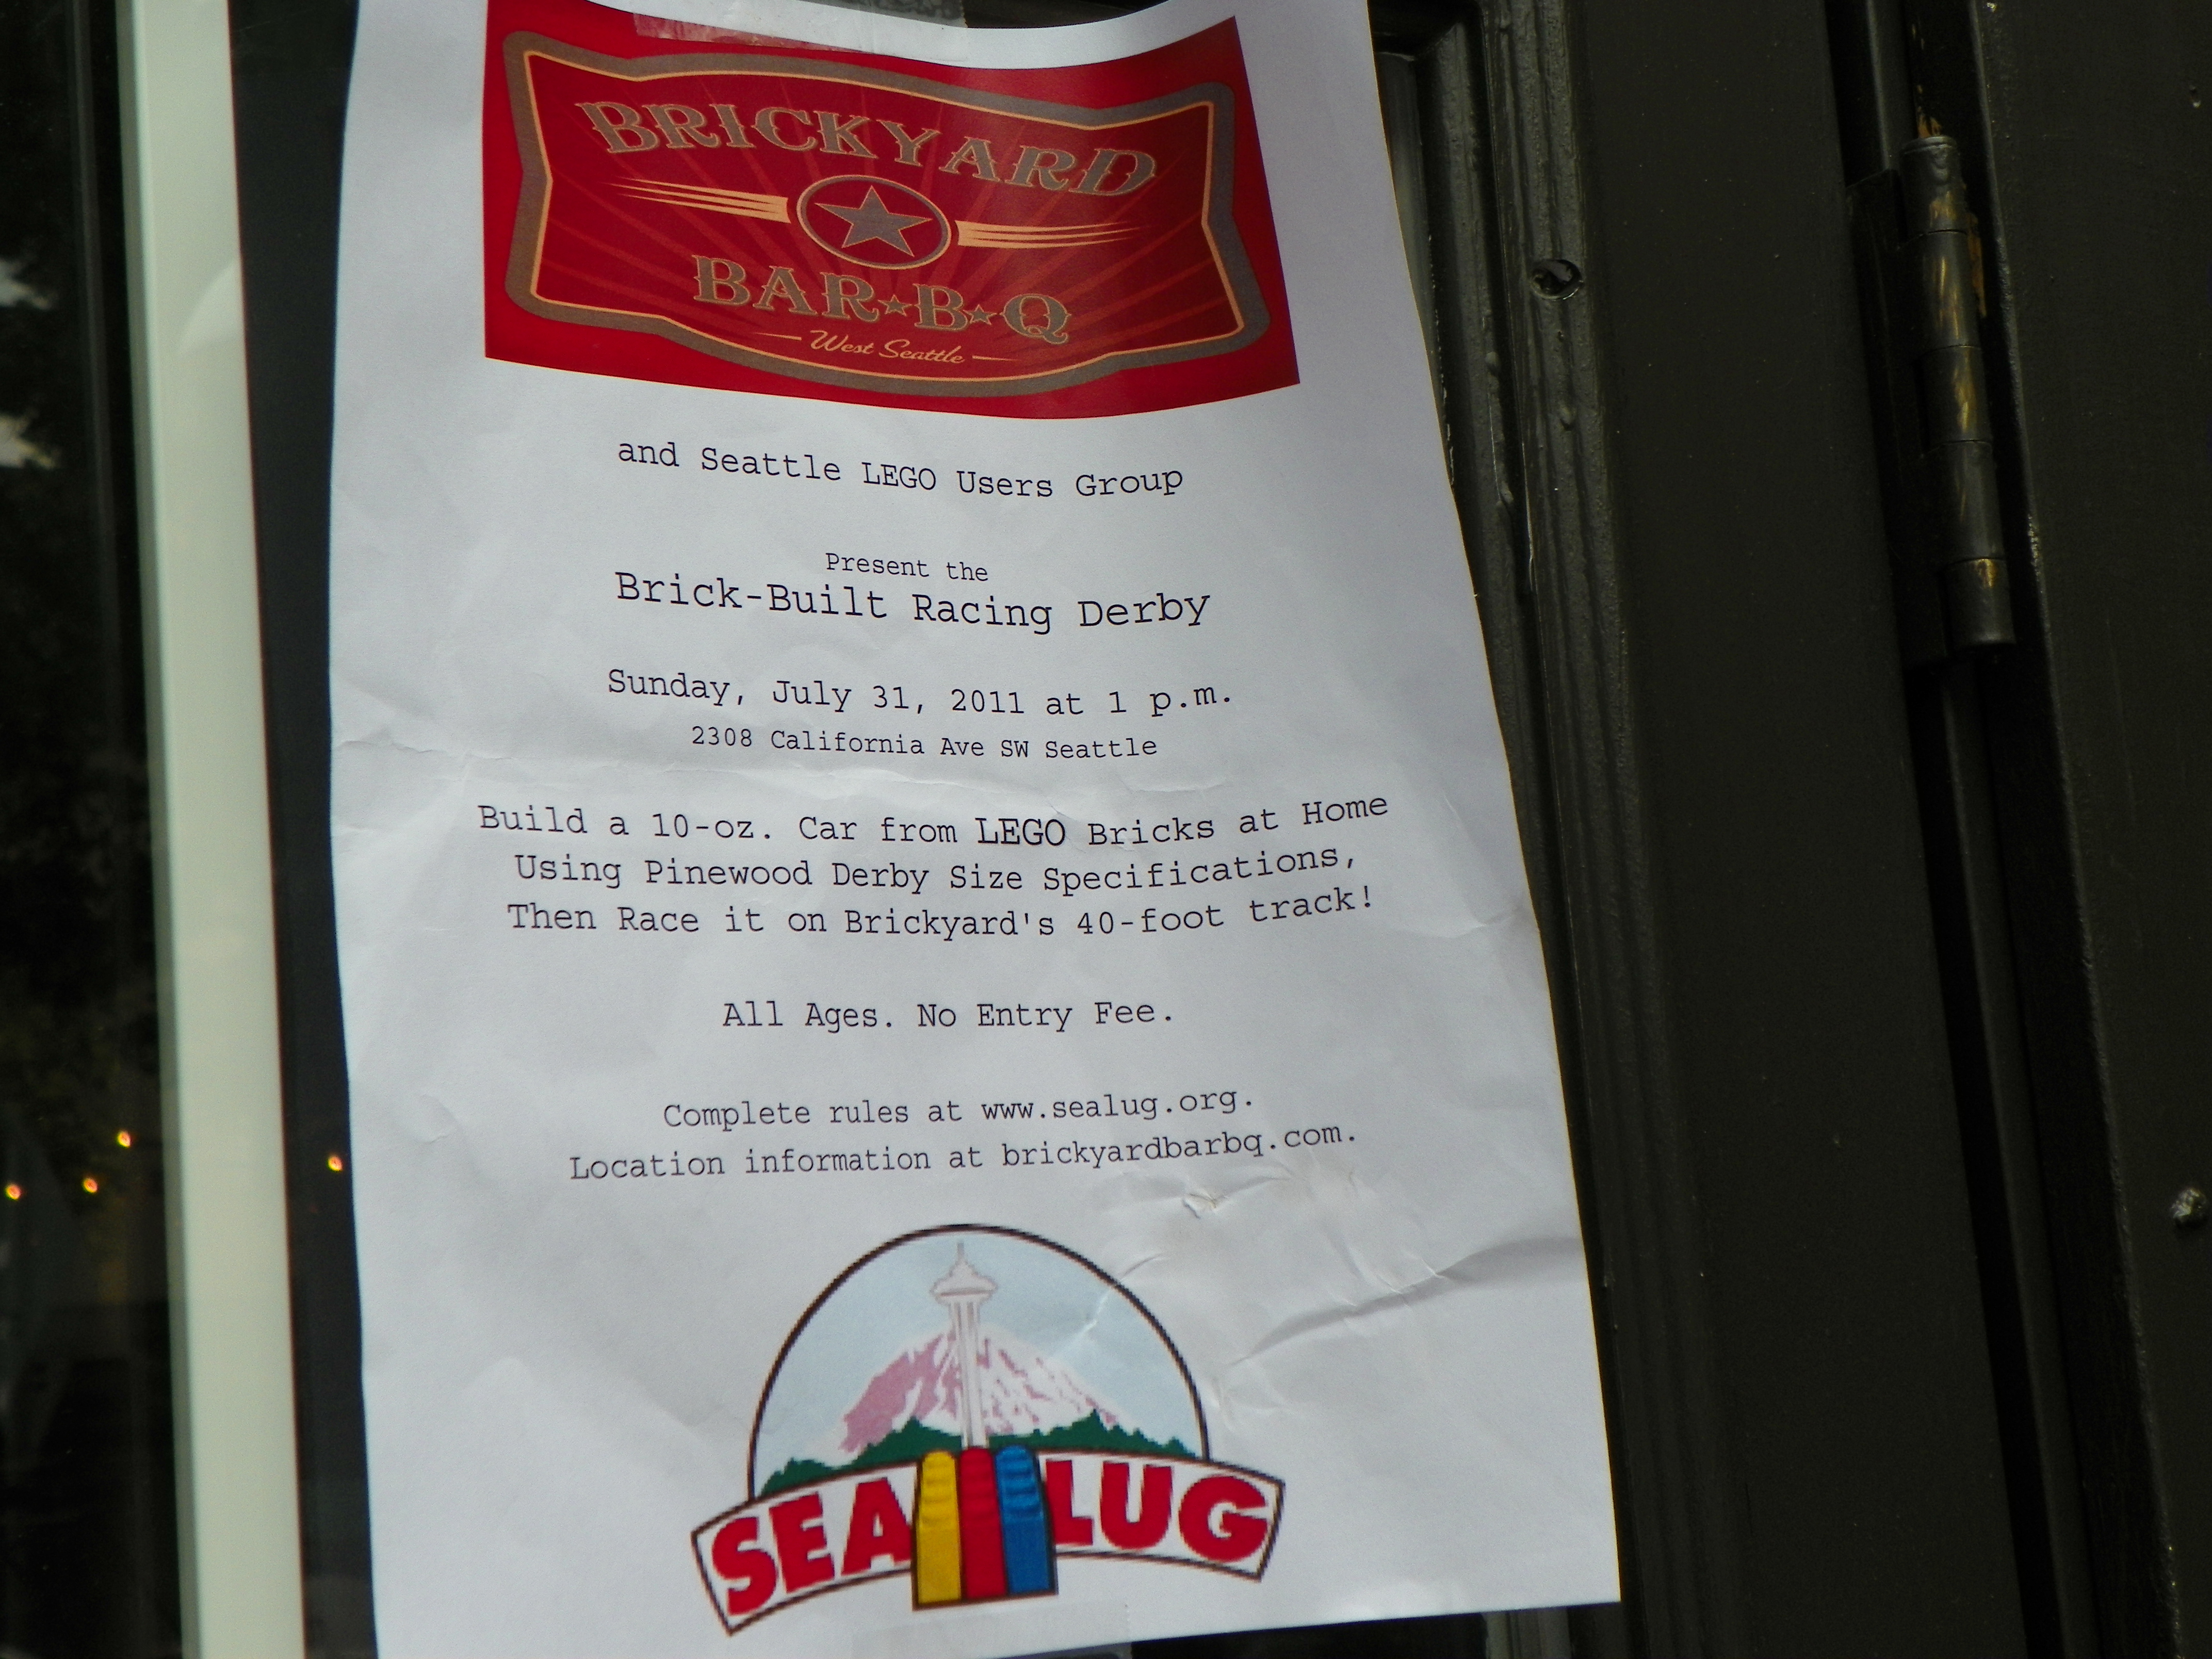 BRICKYARD
BAR★B★Q
West Seattle
and Seattle LEGO Users Group
Present the
Brick-Built Racing Derby
Sunday, July 31, 2011 at 1 p.m.
2308 California Ave SW Seattle
Build a 10-oz. Car from LEGO Bricks at Home
Using Pinewood Derby Size Specifications,
Then Race it on Brickyard's 40-foot track!
All Ages. No Entry Fee.
Complete rules at www.sealug.org.
Location information at brickyardbarbq.com.
SEA LUG